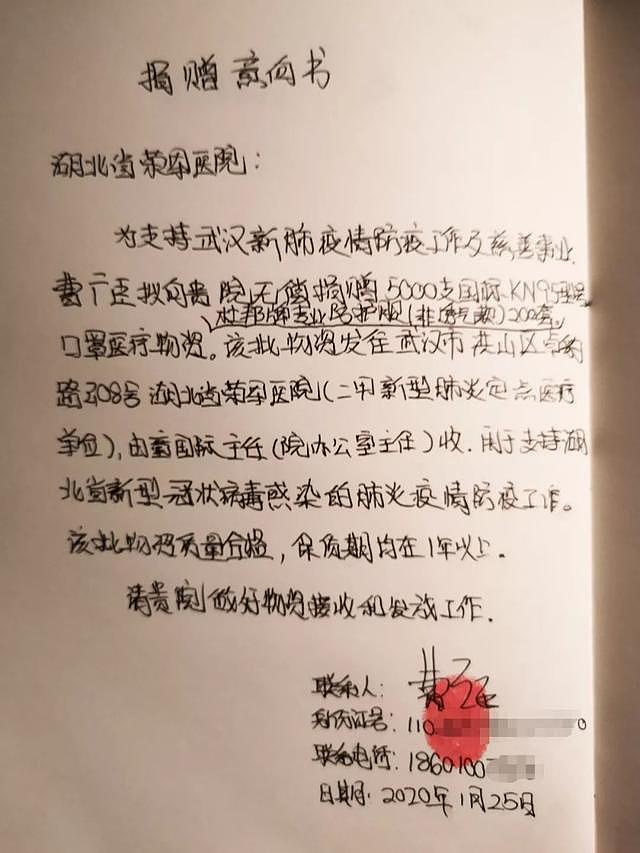 捐赠意向书
湖北省荣军医院：
为支持武汉新肺疫情防疫工作及慈善事业，
拟向贵院无偿捐赠5000支国标KN95型号
杜邦牌专业防护服(非透气款)200套,
口罩医疗物资。该批物资发往武汉市洪山区
路308号湖北省荣军医院(二甲新型肺炎定点医疗
单位),由董国际主任(院办公室主任)收.用于支持湖
北省新型冠状病毒感染的肺炎疫情防疫工作。
该批物资质量合格，保质期均在1年以上.
请贵院做好物资接收和发放工作.
联系人:
身份证号: 110
联系电话: 1860100
日期: 2020年1月25日